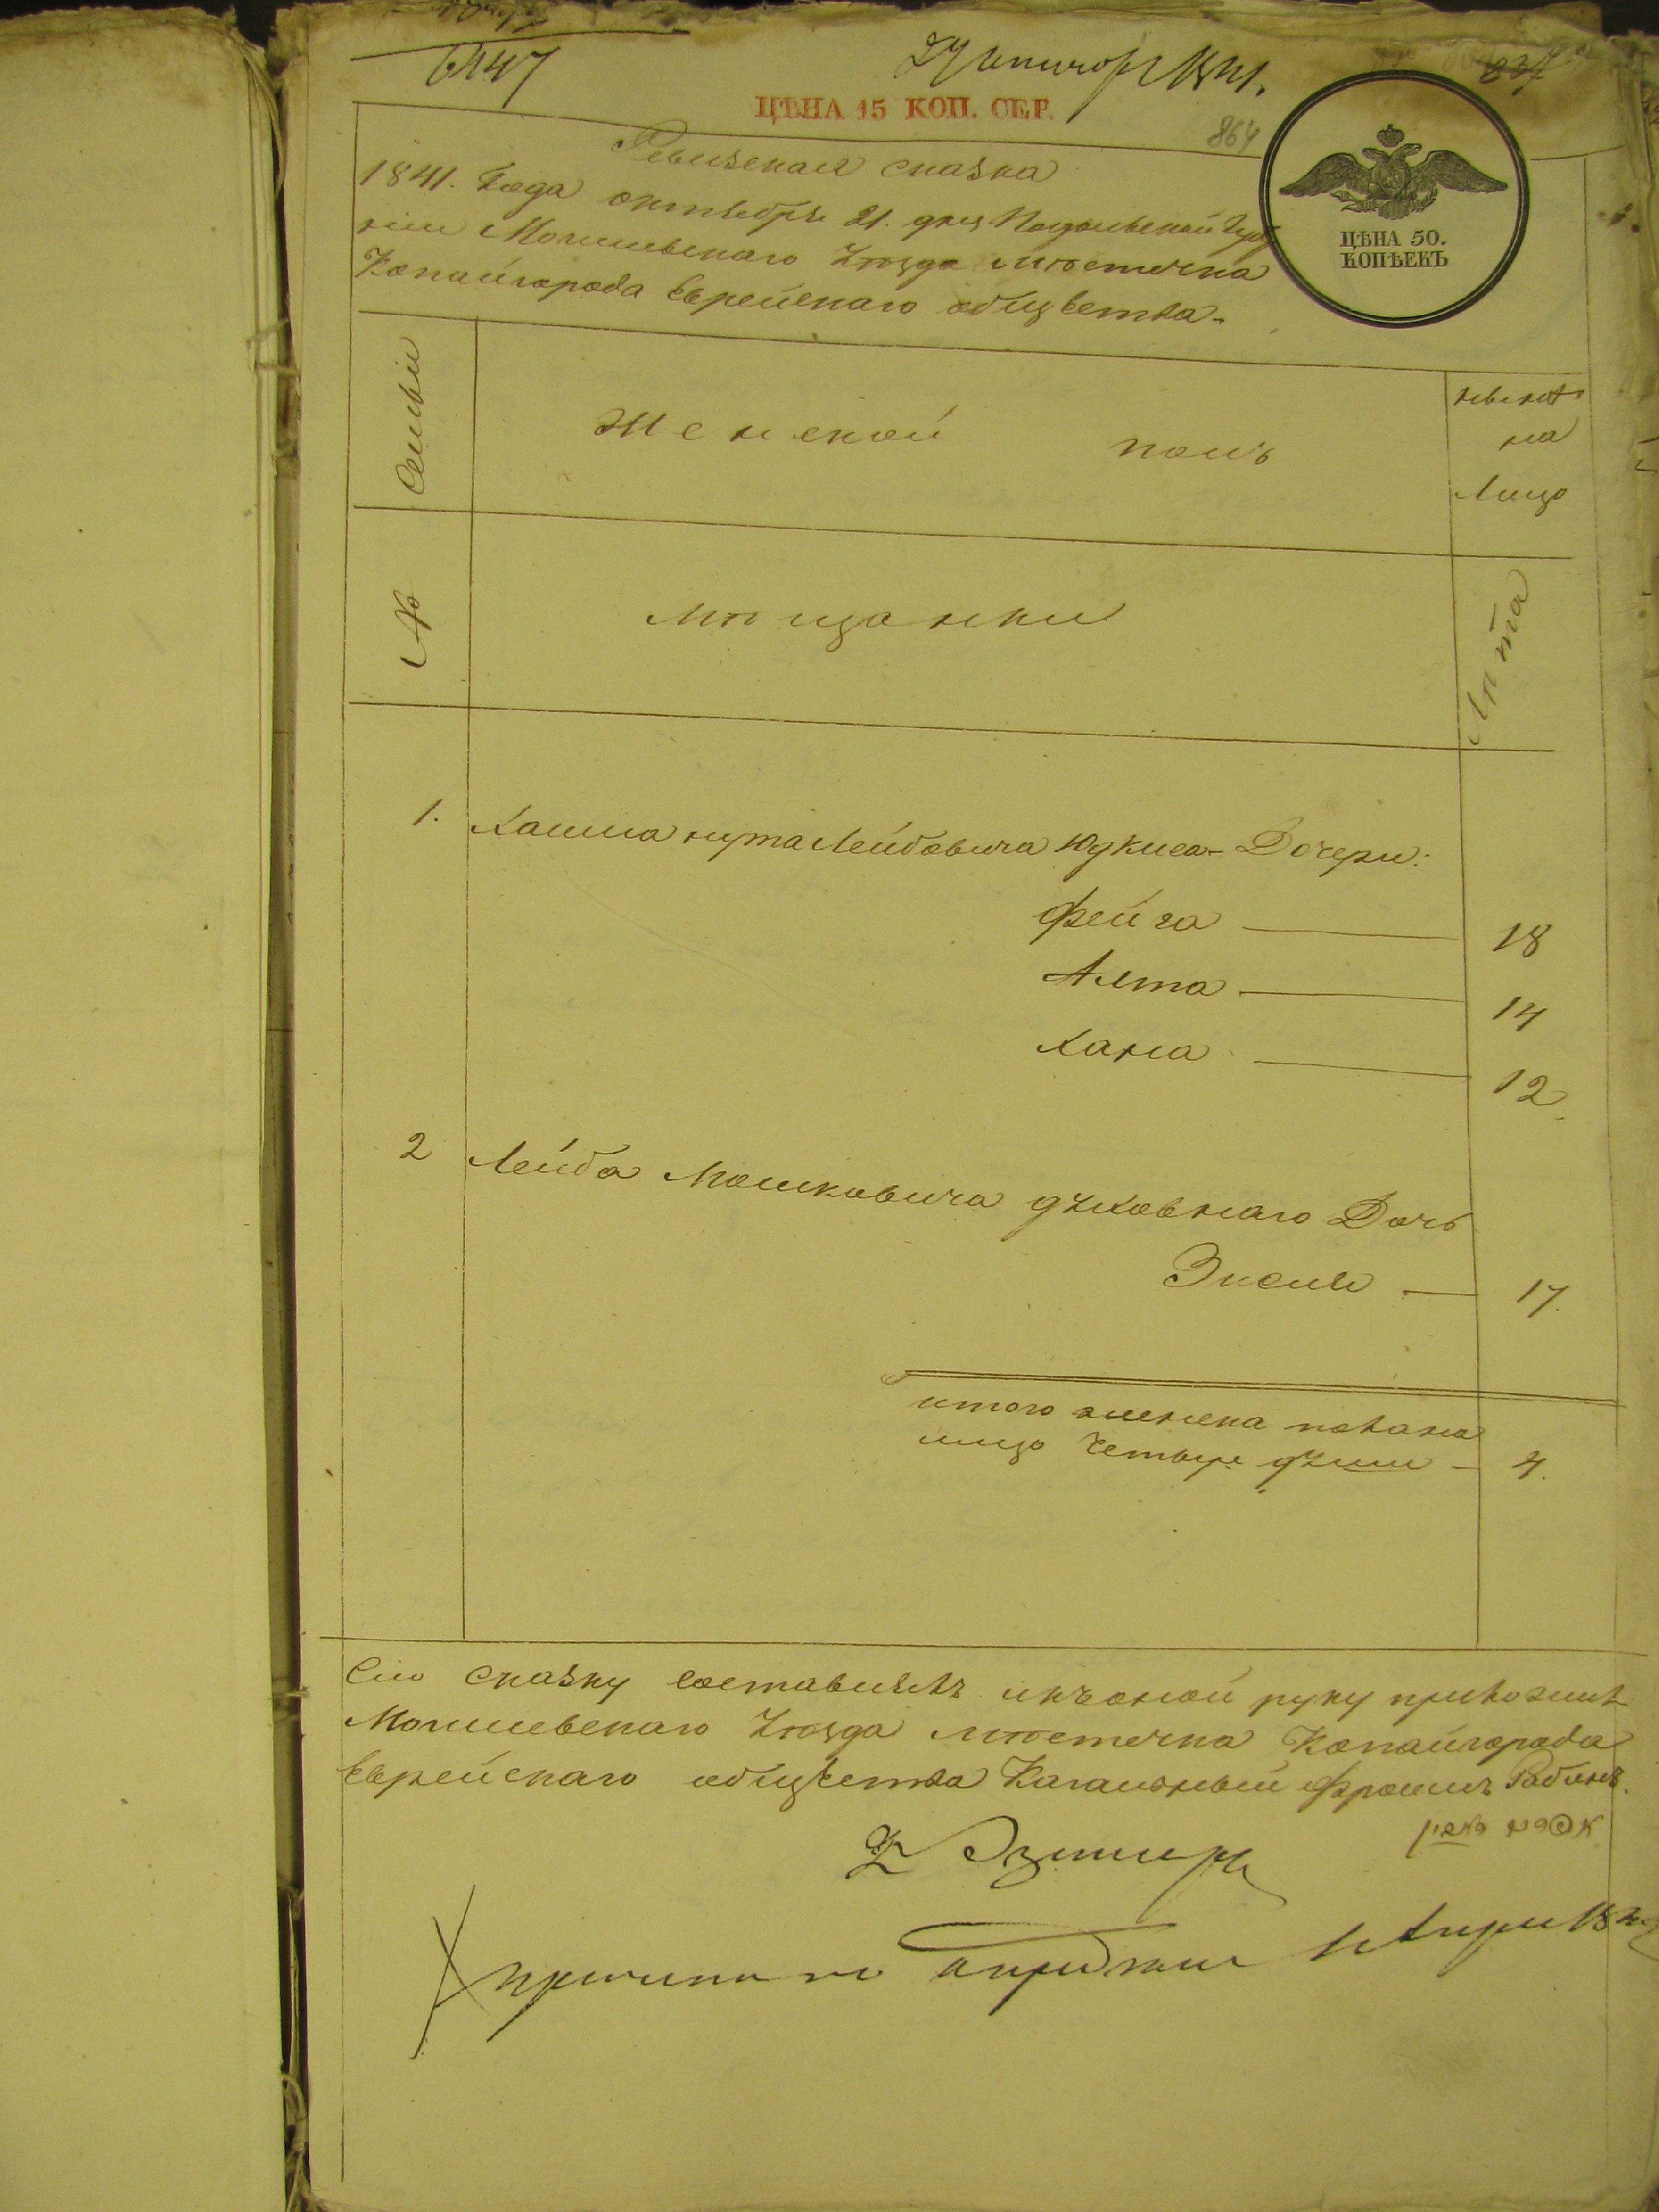 6147
ЦѢНА 15 КОП. СЕР.
864
Ревизская сказка
1841. Года октября 21. дня Подольской Губер
нии Могилевскаго Уѣзда мѣстечка
Копайгорода Еврейскаго общества.
ЦѢНА 50.
КОПѢЕКЪ
Семьи
Женской полъ
нынѣ
на
Лицо
№
мѣщанки
Лѣта
1. Хаима нута Лейбовича Юдкиса Дочери:
Фейга 18
Алта 14
Хана 12
2 Лейба Мошковича духовнаго Дочь
Эисия 17.
итого женска пола на
лицо четыре души 4.
Сию сказку составилъ и къ оной руку приложилъ
Могилевскаго Уѣзда мѣстечка Копайгорода
Еврейскаго общества Кагальный Фроимъ Рабинъ.